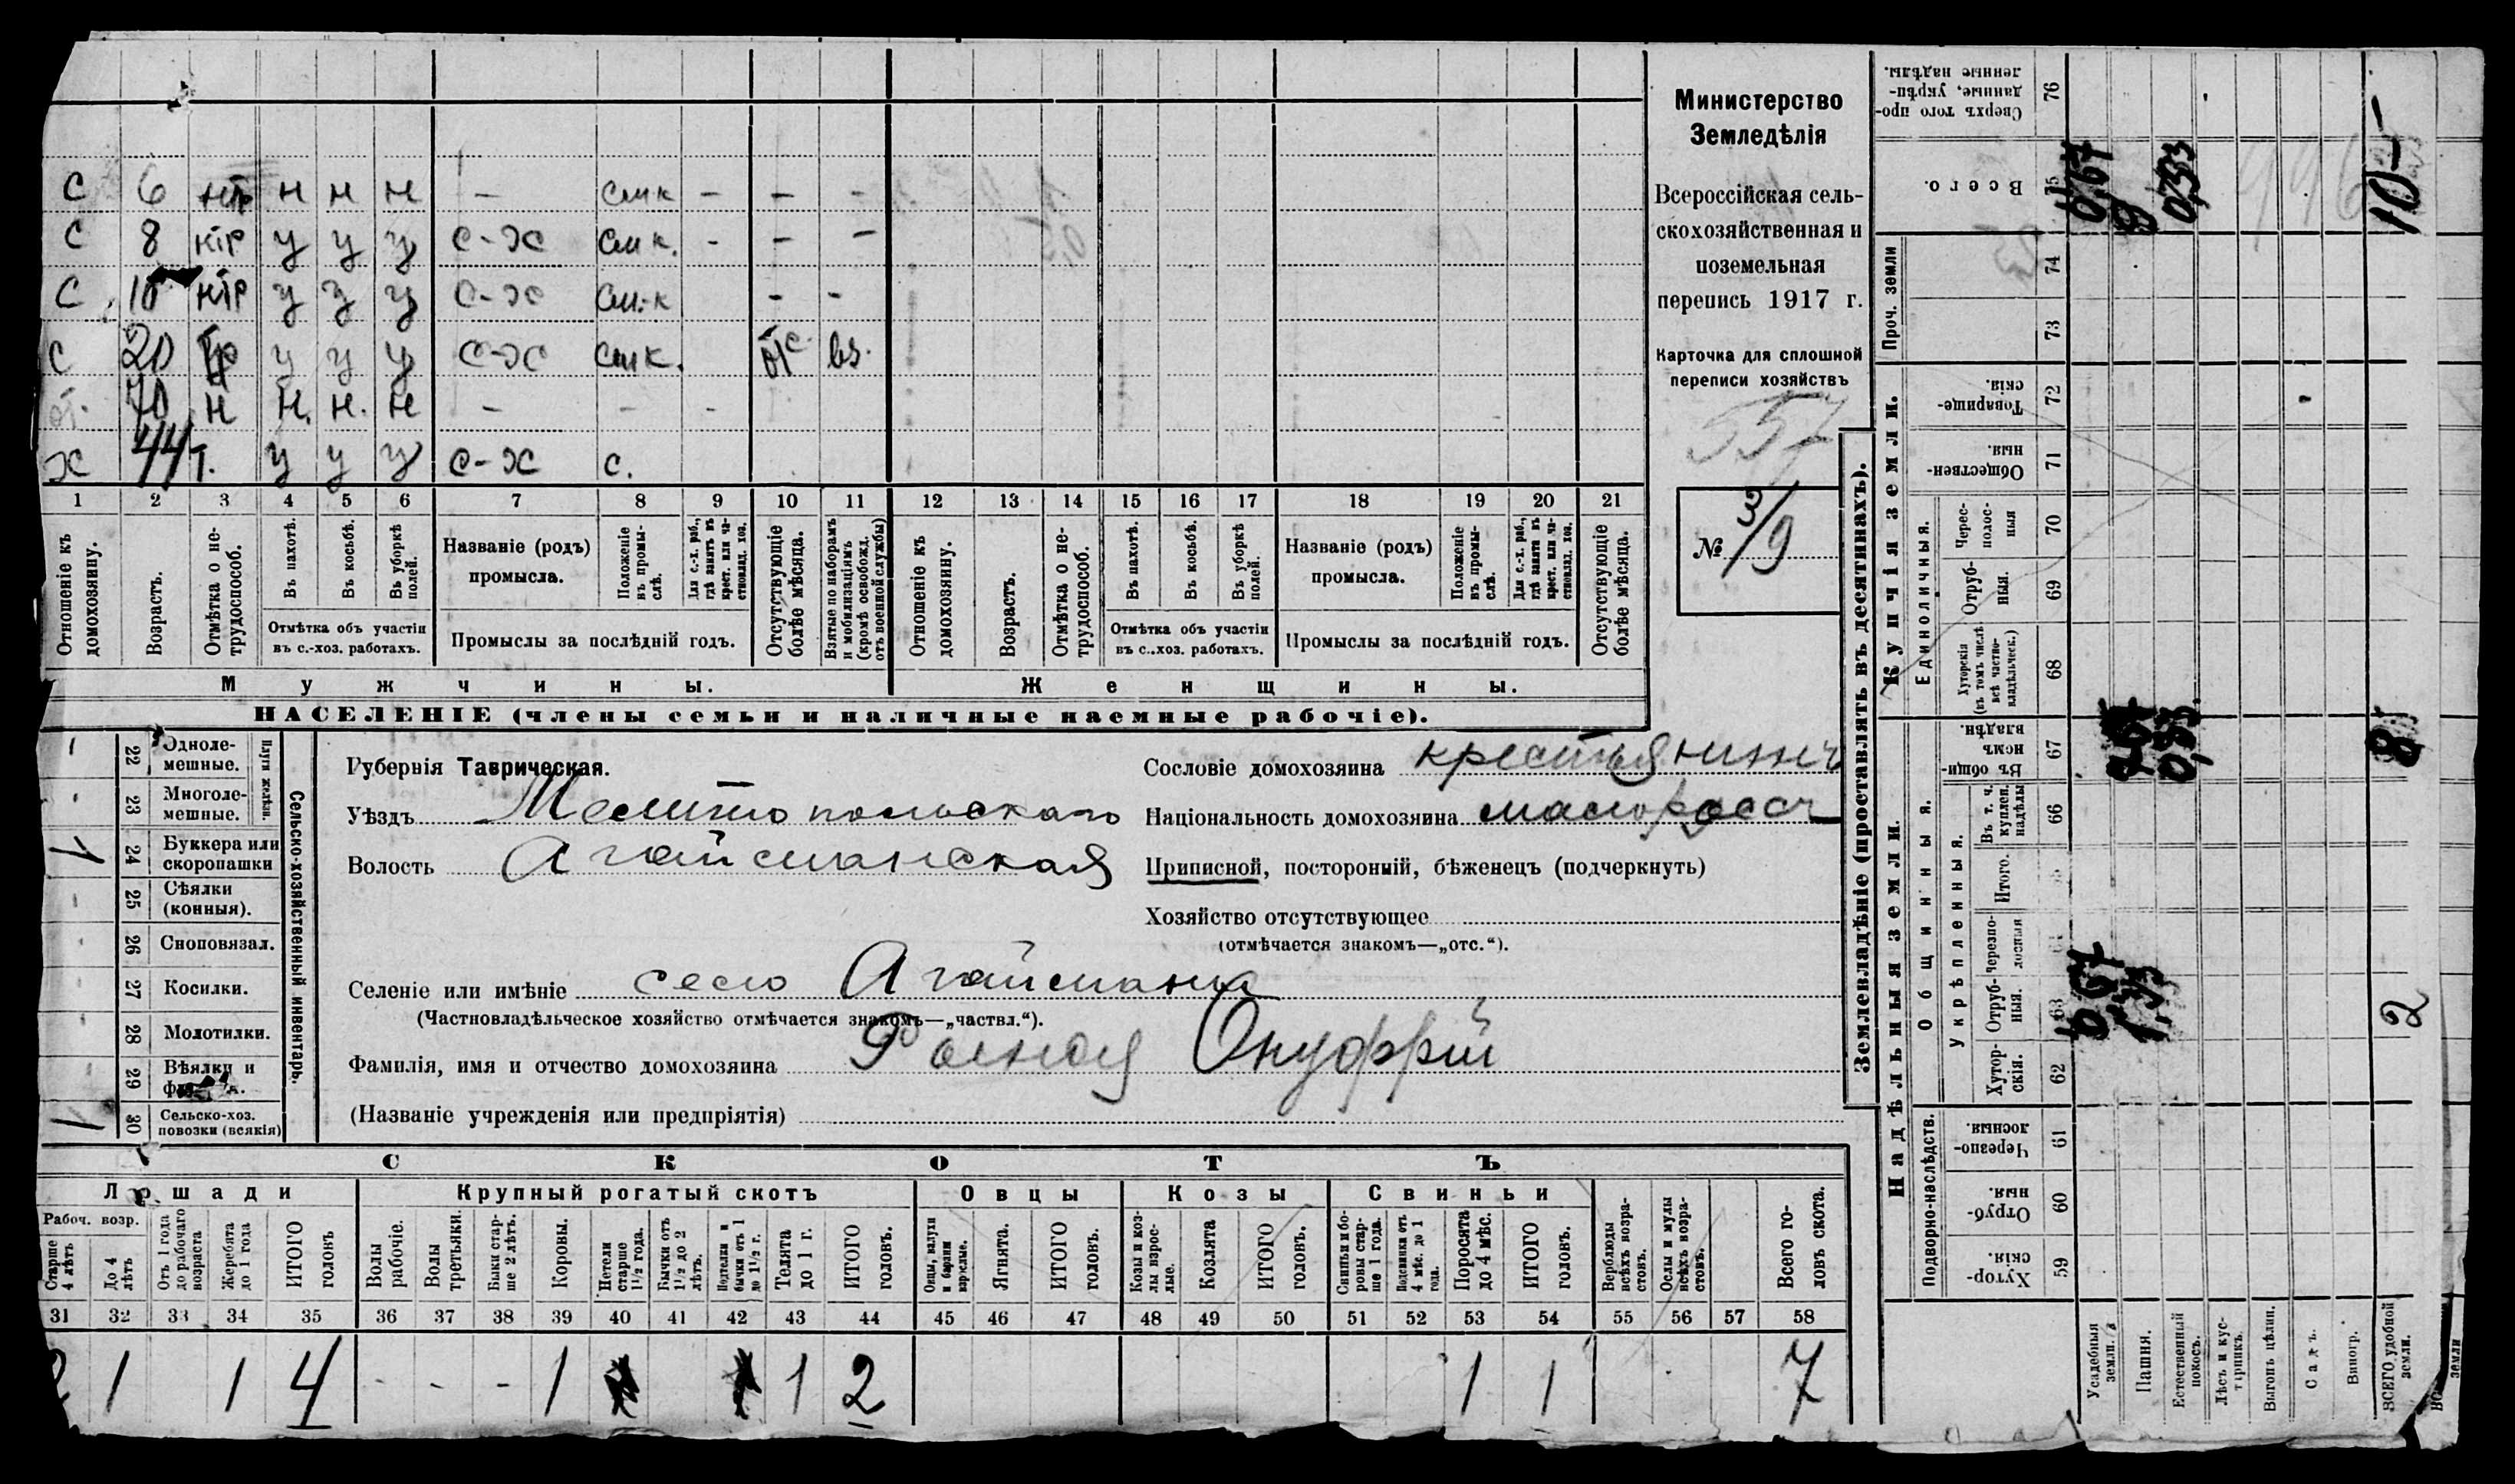 Министерство
Земледѣлія
Всероссійская сель-
скохозяйственная и
поземельная
перепись 1917 г.
Карточка для сплошной
переписи хозяйствъ
557
№ 3/9
С 6 нтр н н н - смк - - -
С 8 нтр у у у с-х смк. - - -
С нтр у у у с-х см.к - -
С 20 у у у с-х смк. вз.
70 н н. н. н - - -
х 44 т. у у у с-х с.
1 2 3 4 5 6 7 8 9 10 11 12 13 14 15 16 17 18 19 20 21
Отношеніе къ домохозяину.
Возрастъ.
Отмѣтка о не-трудоспособ.
Въ пахотѣ.
Въ косьбѣ.
Въ уборкѣ полей.
Отмѣтка объ участіи
въ с.-хоз. работахъ.
Названіе (родъ)
промысла.
Положеніе въ промы-слѣ.
Для с.-х. раб., гдѣ занятъ въ крест. или ча-стновлад. хоз.
Промыслы за послѣдній годъ.
Отсутствующіе болѣе мѣсяца.
Взятые по наборамъ и мобилизаціямъ (кромѣ освобожд. отъ военной службы)
Отношеніе къ домохозяину.
Возрастъ.
Отмѣтка о не-трудоспособ.
Въ пахотѣ.
Въ косьбѣ.
Въ уборкѣ полей.
Отмѣтка объ участіи
въ с..хоз. работахъ.
Названіе (родъ)
промысла.
Положеніе въ промы-слѣ.
Для с.-х. раб., гдѣ занята въ крест. или ча-стновлад. хоз.
Промыслы за послѣдній годъ.
Отсутствующіе болѣе мѣсяца.
Мужчины.
Женщины.
НАСЕЛЕНІЕ (члены семьи и наличные наемные рабочіе).
Сельско-хозяйственный инвентарь.
Плуги желѣзн.
22 Одноле-мешные.
23 Многоле-мешные.
24 Буккера или скоропашки
25 Сѣялки (конныя).
26 Сноповязал.
27 Косилки.
28 Молотилки.
29 Вѣялки и
30 Сельско-хоз. повозки (всякія)
Губернія Таврическая.
Уѣздъ Мелитопольскаго
Волость Агайманская
Селеніе или имѣніе село Агайманы
(Частновладѣльческое хозяйство отмѣчается знакомъ—„частвл.“).
Фамилія, имя и отчество домохозяина Онуфрій
(Названіе учрежденія или предпріятія)
Сословіе домохозяина крестьянинъ
Національность домохозяина малороссъ
Приписной, посторонній, бѣженецъ (подчеркнуть)
Хозяйство отсутствующее
(отмѣчается знакомъ—„отс.“).
СКОТЪ
Лошади
Крупный рогатый скотъ
Овцы
Козы
Свиньи
Рабоч. возр.
Старше 4 лѣтъ
До 4 лѣтъ
Отъ 1 года до рабочаго возраста
Жеребята до 1 года
ИТОГО головъ
Волы рабочіе.
Волы третьяки.
Быки стар-ше 2 лѣтъ.
Коровы.
Нетели старше 1½ года.
Бычки отъ 1½ до 2 лѣтъ.
Подтелки и бычки отъ 1 до 1½ г.
Телята до 1 г.
ИТОГО головъ.
Овцы, валухи и бараны взрослые.
Ягнята.
ИТОГО головъ.
Козы и коз-лы взрос-лые.
Козлята
ИТОГО головъ.
Свиньи и бо-ровы стар-ше 1 года.
Подсвинки отъ 4 мѣс. до 1 года.
Поросята до 4 мѣс.
ИТОГО головъ.
Верблюды всѣхъ возра-стовъ.
Ослы и мулы всѣхъ возра-стовъ.
Всего го-ловъ скота.
31 32 33 34 35 36 37 38 39 40 41 42 43 44 45 46 47 48 49 50 51 52 53 54 55 56 57 58
1 1 4 - - - 1 1 2 1 1 7
Землевладѣніе (проставлять въ десятинахъ).
Надѣльныя земли.
Купчія земли.
Проч. земли
Подворно-наслѣдств.
Общинныя.
Укрѣпленныя.
Единоличныя.
Сверхъ того про-данные, укрѣп-ленные надѣлы. 76
Всего. 75
74
73
Товарище-скія. 72
Обществен-ныя. 71
Черес-полос-ныя 70
Отруб-ныя. 69
Хуторскія (въ томъ числѣ всѣ частно-владѣльческ.) 68
Въ общин-номъ владѣн. 67
Въ т. ч. куплен. надѣлы 66
Итого.
Черезпо-лосныя
Отруб-ныя. 63
Хутор-скія. 62
Черезпо-лосныя. 61
Отруб-ныя. 60
Хутор-скія. 59
Усадебныя земли.
Пашня.
Естественный покосъ.
Лѣсъ и кус-тарникъ.
Выгонъ цѣлин.
Садъ.
Виногр.
ВСЕГО удобной земли.
земли
0,67 9 0,33 10-
0,33 8
0,67 1,33 2